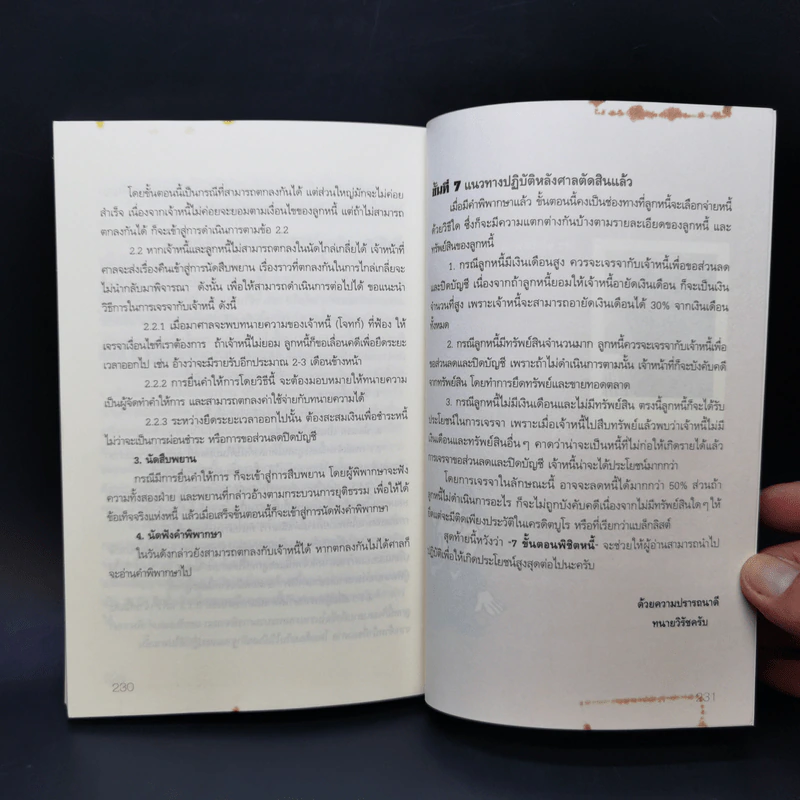 โดยขั้นตอนนี้เป็นกรณีที่สามารถตกลงกันได้ แต่ส่วนใหญ่มักจะไม่ค่อย
สำเร็จ เนื่องจากเจ้าหนี้ไม่ค่อยจะยอมตามเงื่อนไขของลูกหนี้ แต่ถ้าไม่สามารถ
ตกลงกันได้ ก็จะเข้าสู่การดำเนินการตามข้อ 2.2
2.2 หากเจ้าหนี้และลูกหนี้ไม่สามารถตกลงในนัดไกล่เกลี่ยได้ เจ้าหน้าที่
ศาลจะส่งเรื่องคืนเข้าสู่การนัดสืบพยาน เรื่องราวที่ตกลงกันในการไกล่เกลี่ยจะ
ไม่นำกลับมาพิจารณา ดังนั้น เพื่อให้สามารถดำเนินการต่อไปได้ ขอแนะนำ
วิธีการในการเจรจากับเจ้าหนี้ ดังนี้
2.2.1 เมื่อมาศาลจะพบทนายความของเจ้าหนี้ (โจทก์) ที่ฟ้อง ให้
เจรจาเงื่อนไขที่เราต้องการ ถ้าเจ้าหนี้ไม่ยอม ลูกหนี้ก็ขอเลื่อนคดีเพื่อยืดระยะ
เวลาออกไป เช่น อ้างว่าจะมีรายรับอีกประมาณ 2-3 เดือนข้างหน้า
2.2.2 การยื่นคำให้การโดยวิธีนี้ จะต้องมอบหมายให้ทนายความ
เป็นผู้จัดทำคำให้การ และสามารถตกลงค่าใช้จ่ายกับทนายความได้
2.2.3 ระหว่างยืดระยะเวลาออกไปนั้น ต้องสะสมเงินเพื่อชำระหนี้
ไม่ว่าจะเป็นการผ่อนชำระ หรือการขอส่วนลดปิดบัญชี
3. นัดสืบพยาน
กรณีมีการยื่นคำให้การ ก็จะเข้าสู่การสืบพยาน โดยผู้พิพากษาจะฟัง
ความทั้งสองฝ่าย และพยานที่กล่าวอ้างตามกระบวนการยุติธรรม เพื่อให้ได้
ข้อเท็จจริงแห่งหนี้ แล้วเมื่อเสร็จขั้นตอนนี้ก็จะเข้าสู่การนัดฟังคำพิพากษา
4. นัดฟังคำพิพากษา
ในวันดังกล่าวยังสามารถตกลงกับเจ้าหนี้ได้ หากตกลงกันไม่ได้ศาลก็
จะอ่านคำพิพากษาไป
230
ขั้นที่ 7 แนวทางปฏิบัติหลังศาลตัดสินแล้ว
เมื่อมีคำพิพากษาแล้ว ขั้นตอนนี้คงเป็นช่องทางที่ลูกหนี้จะเลือกจ่ายหนี้
ด้วยวิธีใด ซึ่งก็จะมีความแตกต่างกันบ้างตามรายละเอียดของลูกหนี้ และ
ทรัพย์สินของลูกหนี้
1. กรณีลูกหนี้มีเงินเดือนสูง ควรจะเจรจากับเจ้าหนี้เพื่อขอส่วนลด
และปิดบัญชี เนื่องจากถ้าลูกหนี้ยอมให้เจ้าหนี้อายัดเงินเดือน ก็จะเป็นเงิน
จำนวนที่สูง เพราะเจ้าหนี้จะสามารถอายัดเงินเดือนได้ 30% จากเงินเดือน
ทั้งหมด
2. กรณีลูกหนี้มีทรัพย์สินจำนวนมาก ลูกหนี้ควรจะเจรจากับเจ้าหนี้เพื่อ
ขอส่วนลดและปิดบัญชี เพราะถ้าไม่ดำเนินการตามนั้น เจ้าหน้าที่ก็จะบังคับคดี
จากทรัพย์สิน โดยทำการยึดทรัพย์และขายทอดตลาด
3. กรณีลูกหนี้ไม่มีเงินเดือนและไม่มีทรัพย์สิน ตรงนี้ลูกหนี้ก็จะได้รับ
ประโยชน์ในการเจรจา เพราะเมื่อเจ้าหนี้ไปสืบทรัพย์แล้วพบว่าเจ้าหนี้ไม่มี
เงินเดือนและทรัพย์สินอื่นๆ คาดว่าน่าจะเป็นหนี้ที่ไม่ก่อให้เกิดรายได้แล้ว
การเจรจาขอส่วนลดและปิดบัญชี เจ้าหนี้น่าจะได้ประโยชน์มากกว่า
โดยการเจรจาในลักษณะนี้ อาจจะลดหนี้ได้มากกว่า 50% ส่วนถ้า
ลูกหนี้ไม่ดำเนินการอะไร ก็จะไม่ถูกบังคับคดีเนื่องจากไม่มีทรัพย์สินใดๆ ให้
ยึดแต่จะมีติดเพียงประวัติในเครดิตบูโร หรือที่เรียกว่าแบล็กลิสต์
สุดท้ายนี้หวังว่า -7 ขั้นตอนพิชิตหนี้- จะช่วยให้ผู้อ่านสามารถนำไป
ปฏิบัติเพื่อให้เกิดประโยชน์สูงสุดต่อไปนะครับ
ด้วยความปรารถนาดี
ทนายวิรัชครับ
231